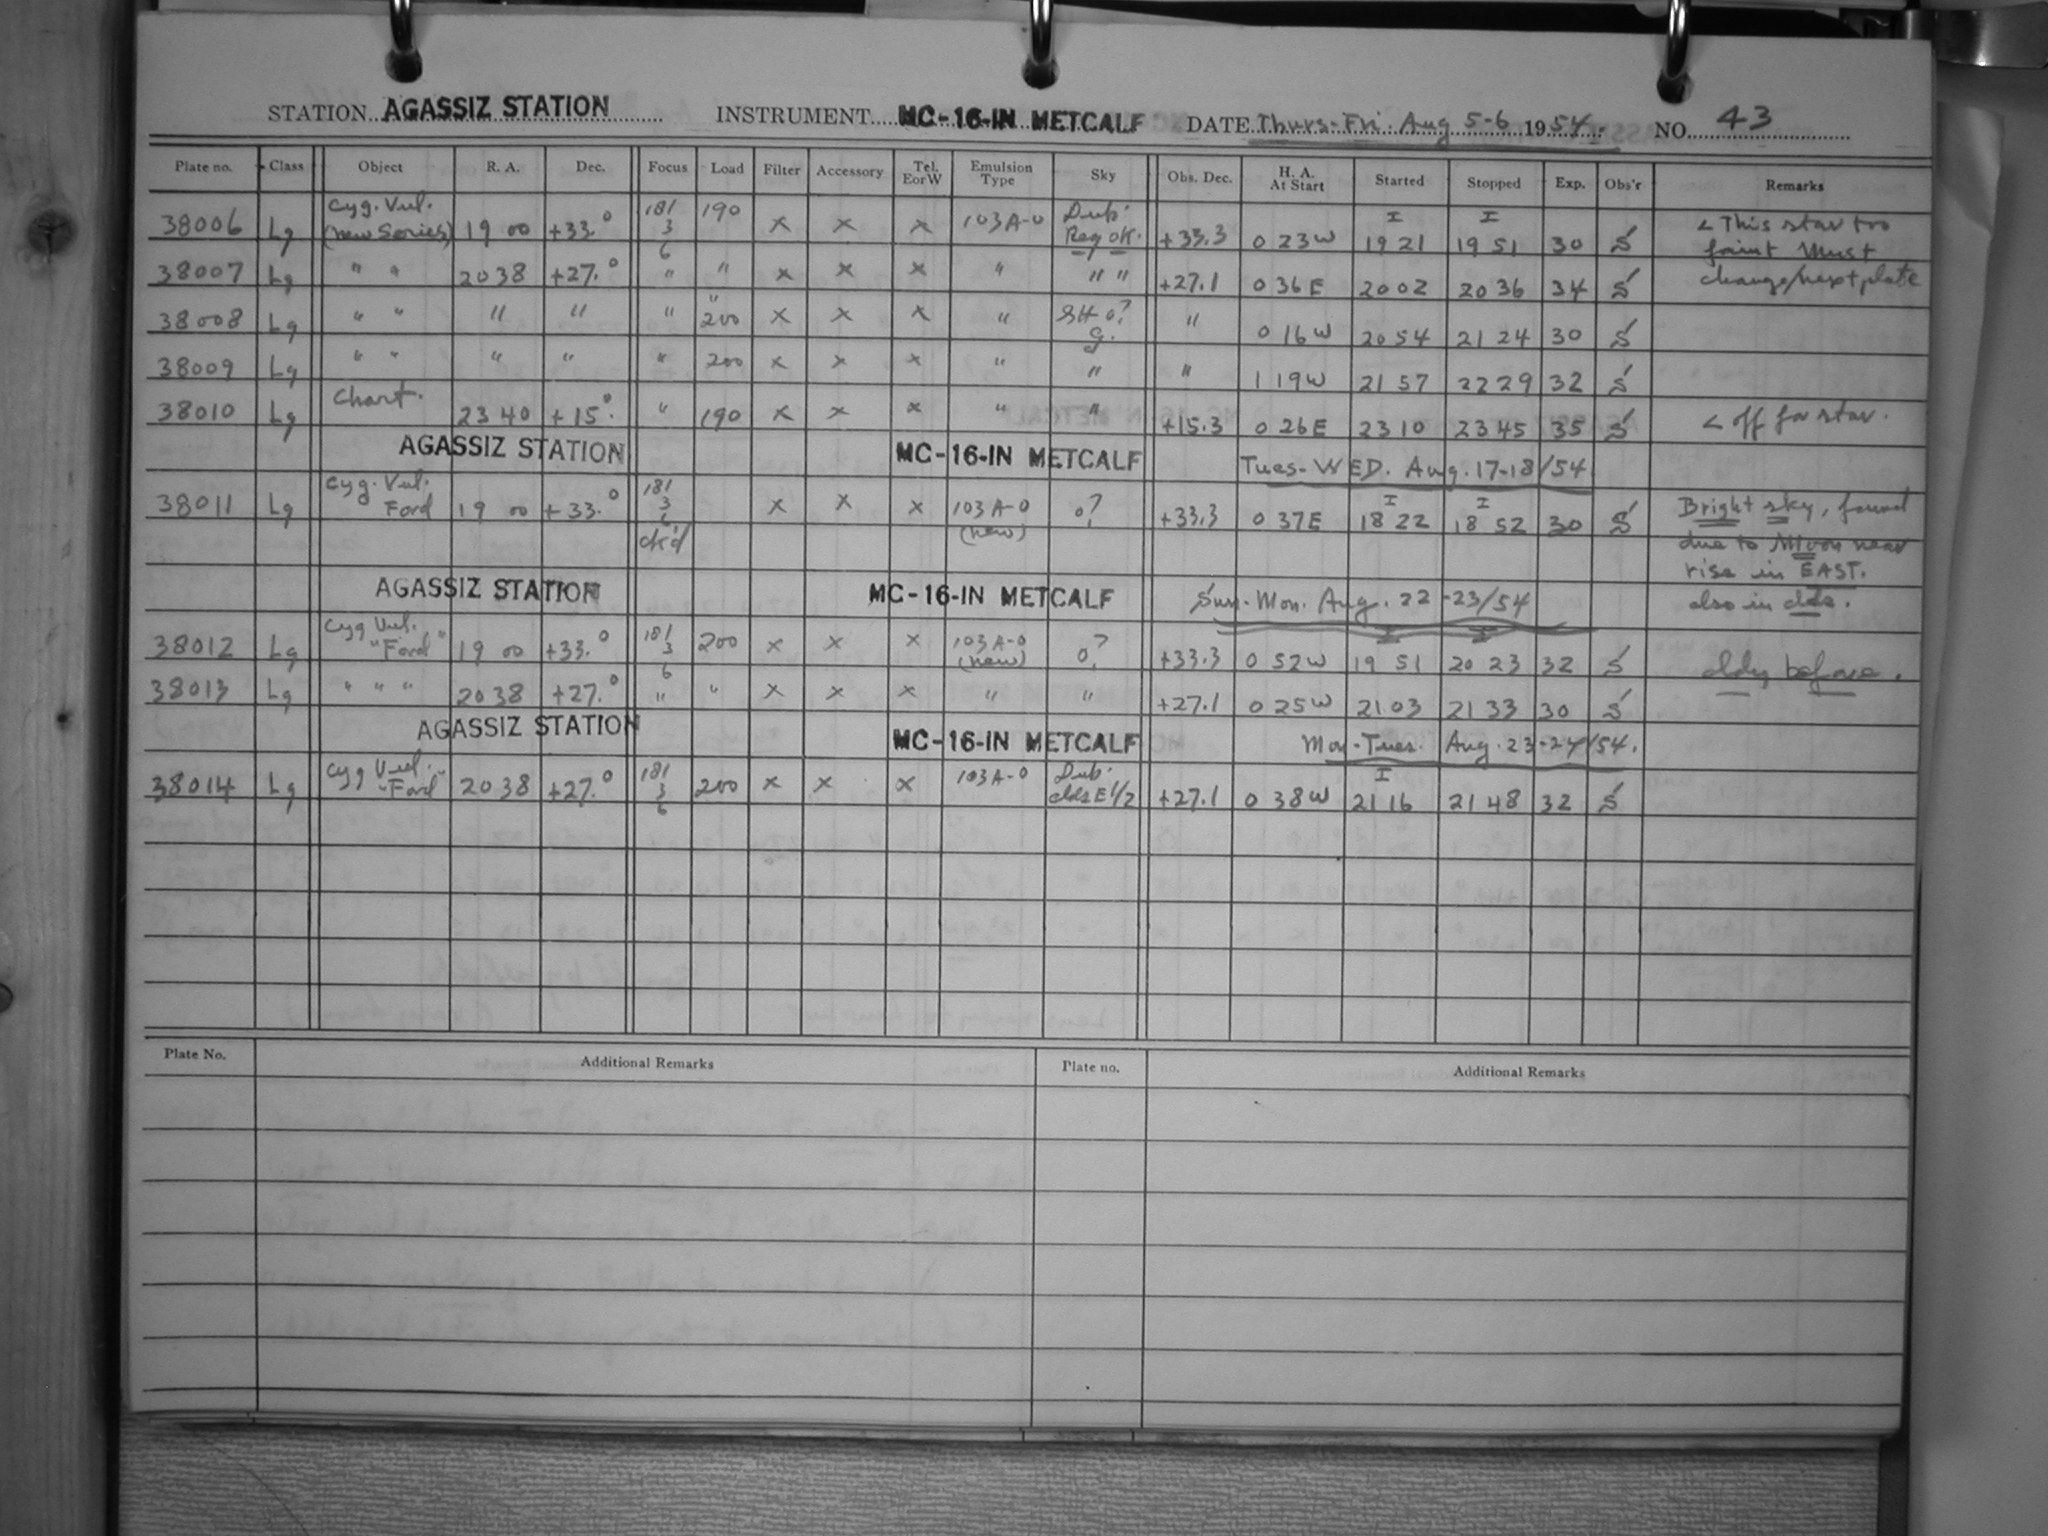 STATION AGASSIZ STATION INSTRUMENT MC-16-IN METCALF DATE Thurs-Fri Aug 5-6 1954. NO. 43
Plate no. Class Object R. A. Dec. Focus Load Filter Accessory Tel. E or W Emulsion Type Sky Obs. Dec. H. A. At Start Started Stopped Exp. Obs'r Remarks
38006 Lg Cyg. Vul. (New Series) 19 00 +33.° 181 3 6 190 x x x 103A-O Dub. Reg OK. +33.3 0 23W I 19 21 I 19 51 30 S < This star too faint Must
38007 Lg " " 20 38 +27.° " " x x x " " " +27.1 0 36E 20 02 20 36 34 S change/next plate
38008 Lg " " " " " " 200 x x x " SH o? g. " 0 16W 20 54 21 24 30 S
38009 Lg " " " " " 200 x x x " " " 1 19W 21 57 22 29 32 S
38010 Lg Chart. 23 40 +15°. " 190 x x x " " +15.3 0 26E 23 10 23 45 35 S < off for star.
AGASSIZ STATION MC-16-IN METCALF Tues-WED. Aug. 17-18/54
38011 Lg Cyg. Vul. Ford 19 00 +33.° 181 3 6 ck'd x x x 103A-O (new) o? +33.3 0 37E I 18 22 I 18 52 30 S Bright sky, found
due to Moon near
rise in EAST.
AGASSIZ STATION MC-16-IN METCALF Sun-Mon. Aug. 22-23/54 also in clds.
38012 Lg Cyg Vul. "Ford" 19 00 +33.° 181 3 6 200 x x x 103A-O (new) o? +33.3 0 52W I 19 51 I 20 23 32 S cldy before.
38013 Lg " " " 20 38 +27.° " " x x x " " +27.1 0 25W 21 03 21 33 30 S
AGASSIZ STATION MC-16-IN METCALF Mon-Tues. Aug. 23-24/54.
38014 Lg Cyg Vul. "Ford" 20 38 +27.° 181 3 6 200 x x x 103A-O Dub. clds E 1/2 +27.1 0 38W I 21 16 21 48 32 S
Plate No. Additional Remarks Plate no. Additional Remarks